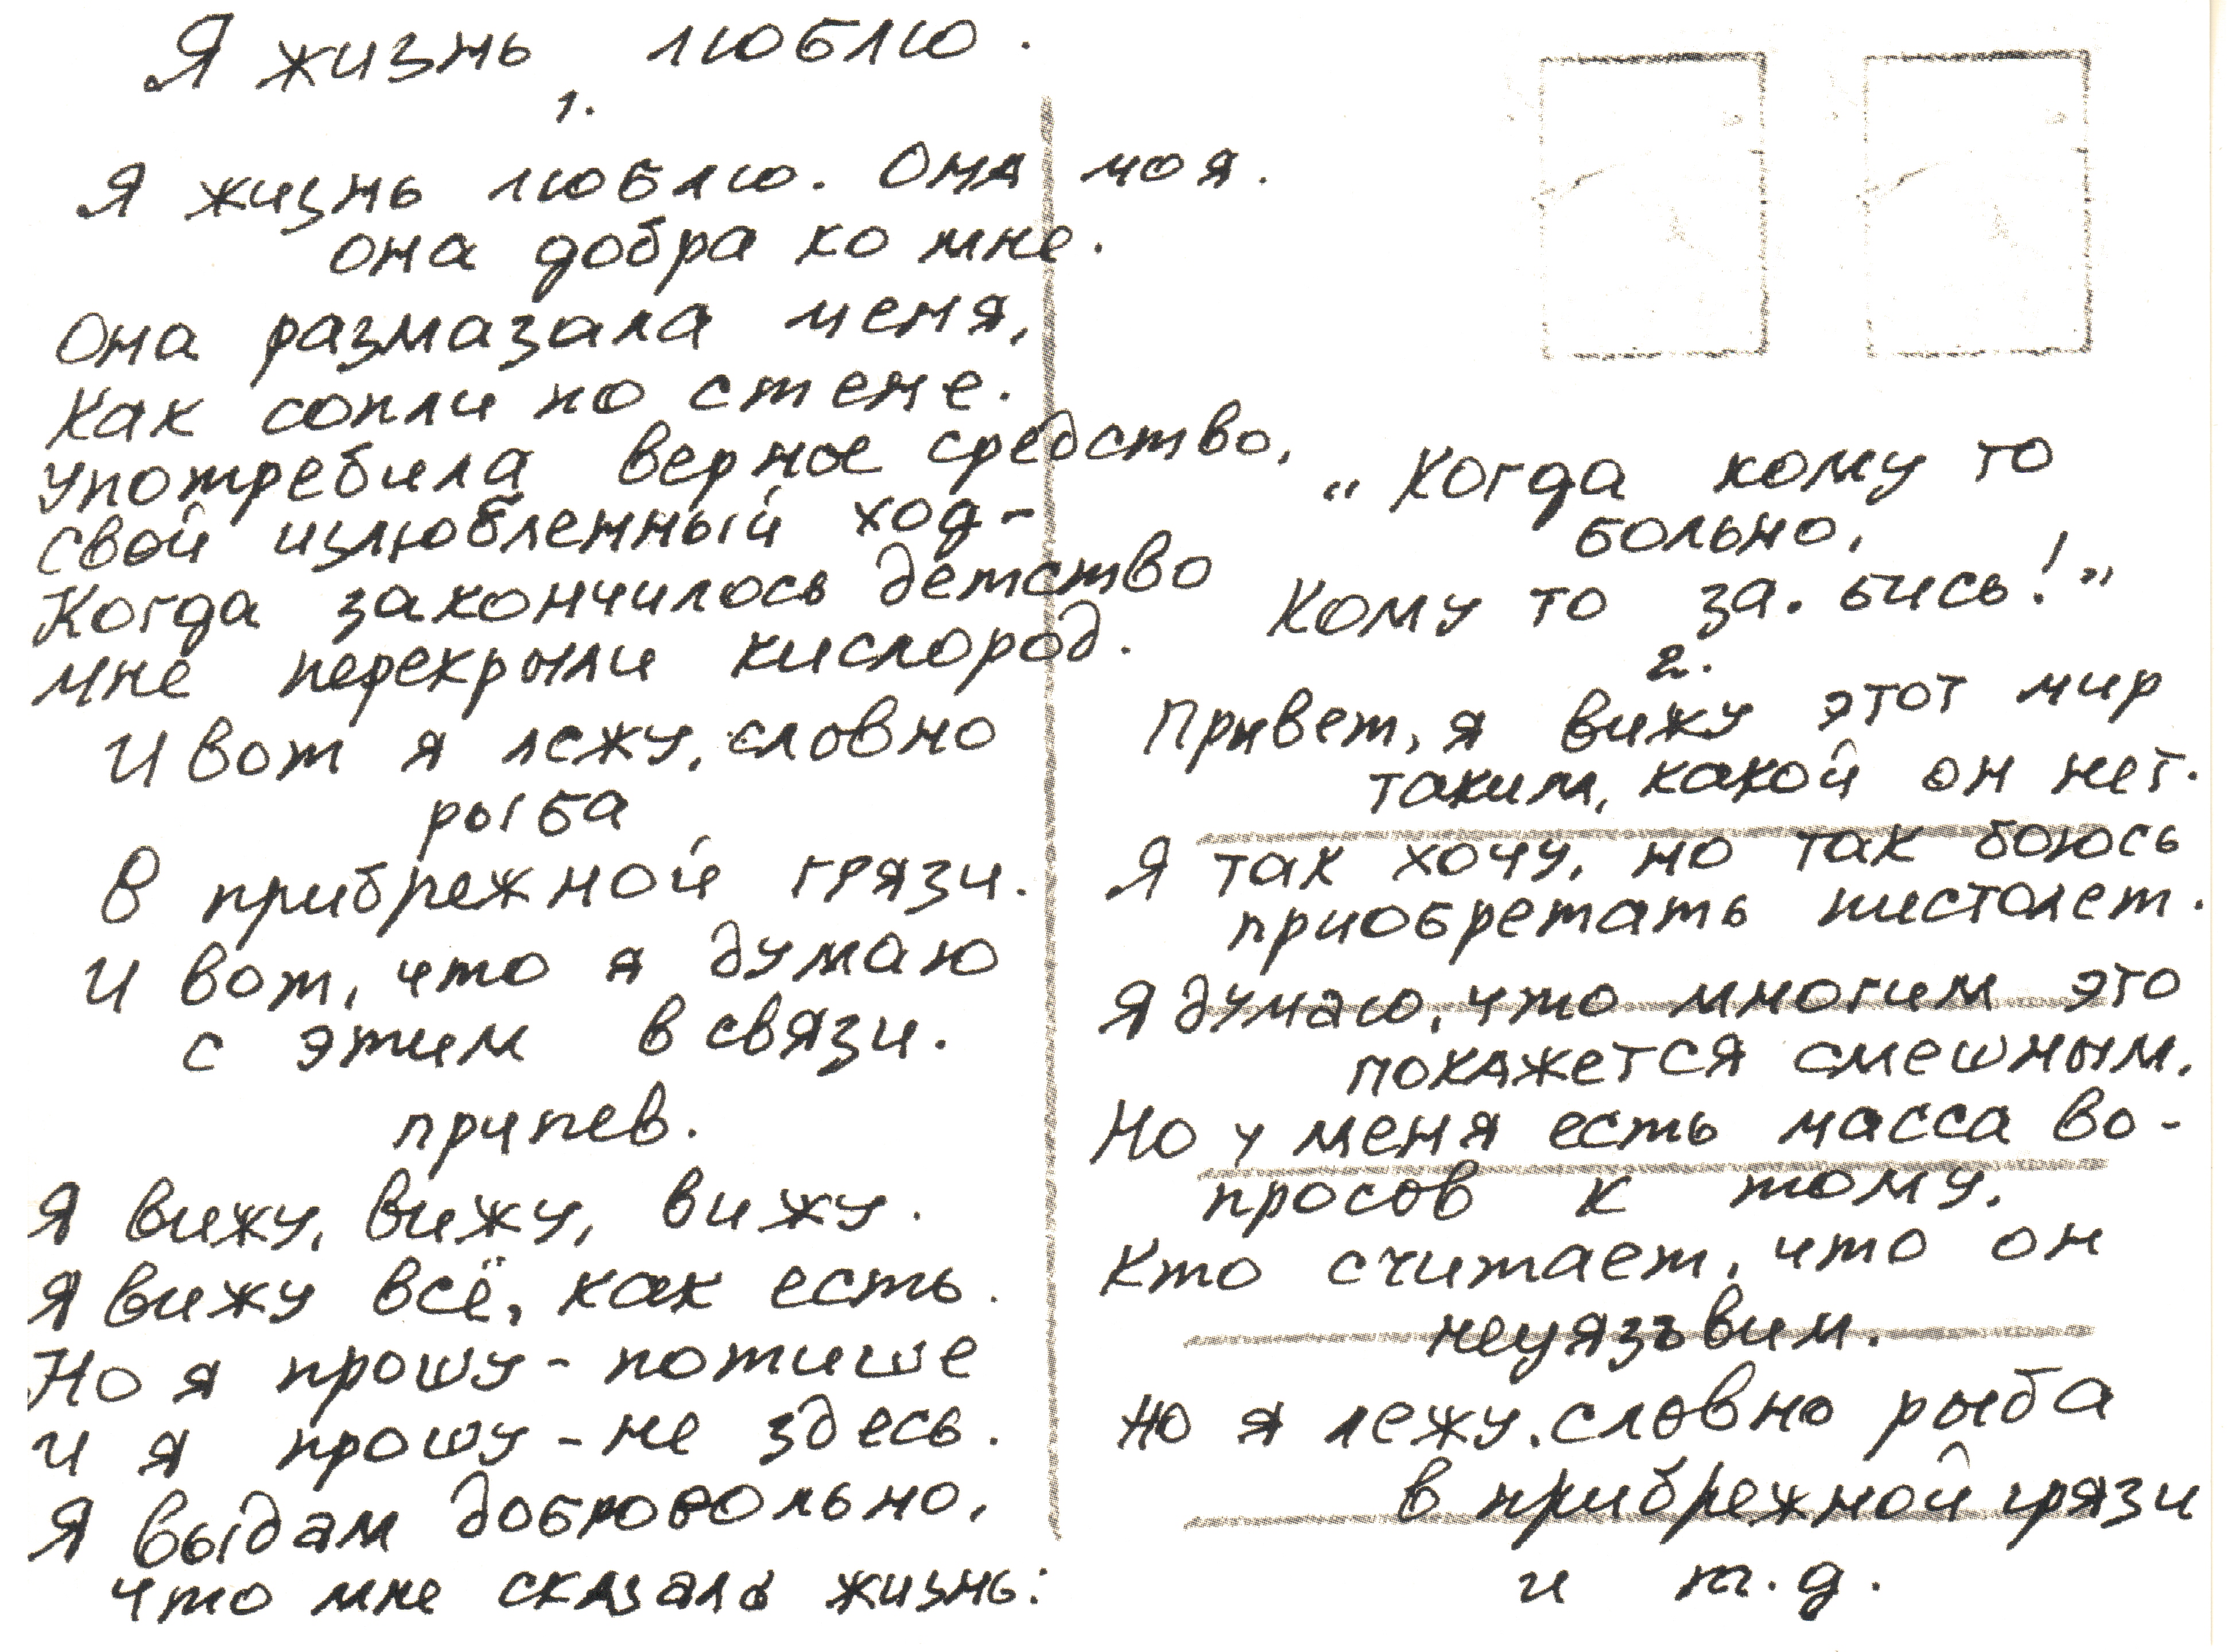 Я жизнь люблю.
1.
Я жизнь люблю. Она моя.
она добра ко мне.
Она размазала меня,
Как сопли по стене.
употребила верное средство,
свой излюбленный ход-
Когда закончилось детство
мне перекрыли кислород.
И вот я лежу, словно
рыба
В прибрежной грязи.
И вот, что я думаю
с этим в связи.
припев.
Я вижу, вижу, вижу.
Я вижу всё, как есть.
Но я прошу - потише
И я прошу - не здесь.
Я выдам добровольно,
что мне сказала жизнь:
„Когда кому то
больно,
Кому то за.бись!"
2.
Привет, я вижу этот мир
таким, какой он нет.
Я так хочу, но так боюсь
приобретать пистолет.
Я думаю, что многим это
покажется смешным,
Но у меня есть масса во-
просов к тому,
Кто считает, что он
неуязъвим.
Но я лежу, словно рыба
в прибрежной грязи
и т.д.